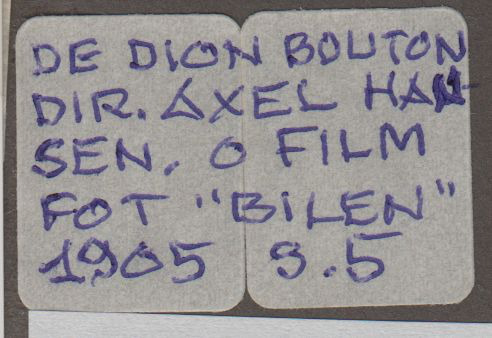 DE DION BOUTON
DIR. AXEL HAN-
SEN. O FILM
FOT "BILEN"
1905 S.5